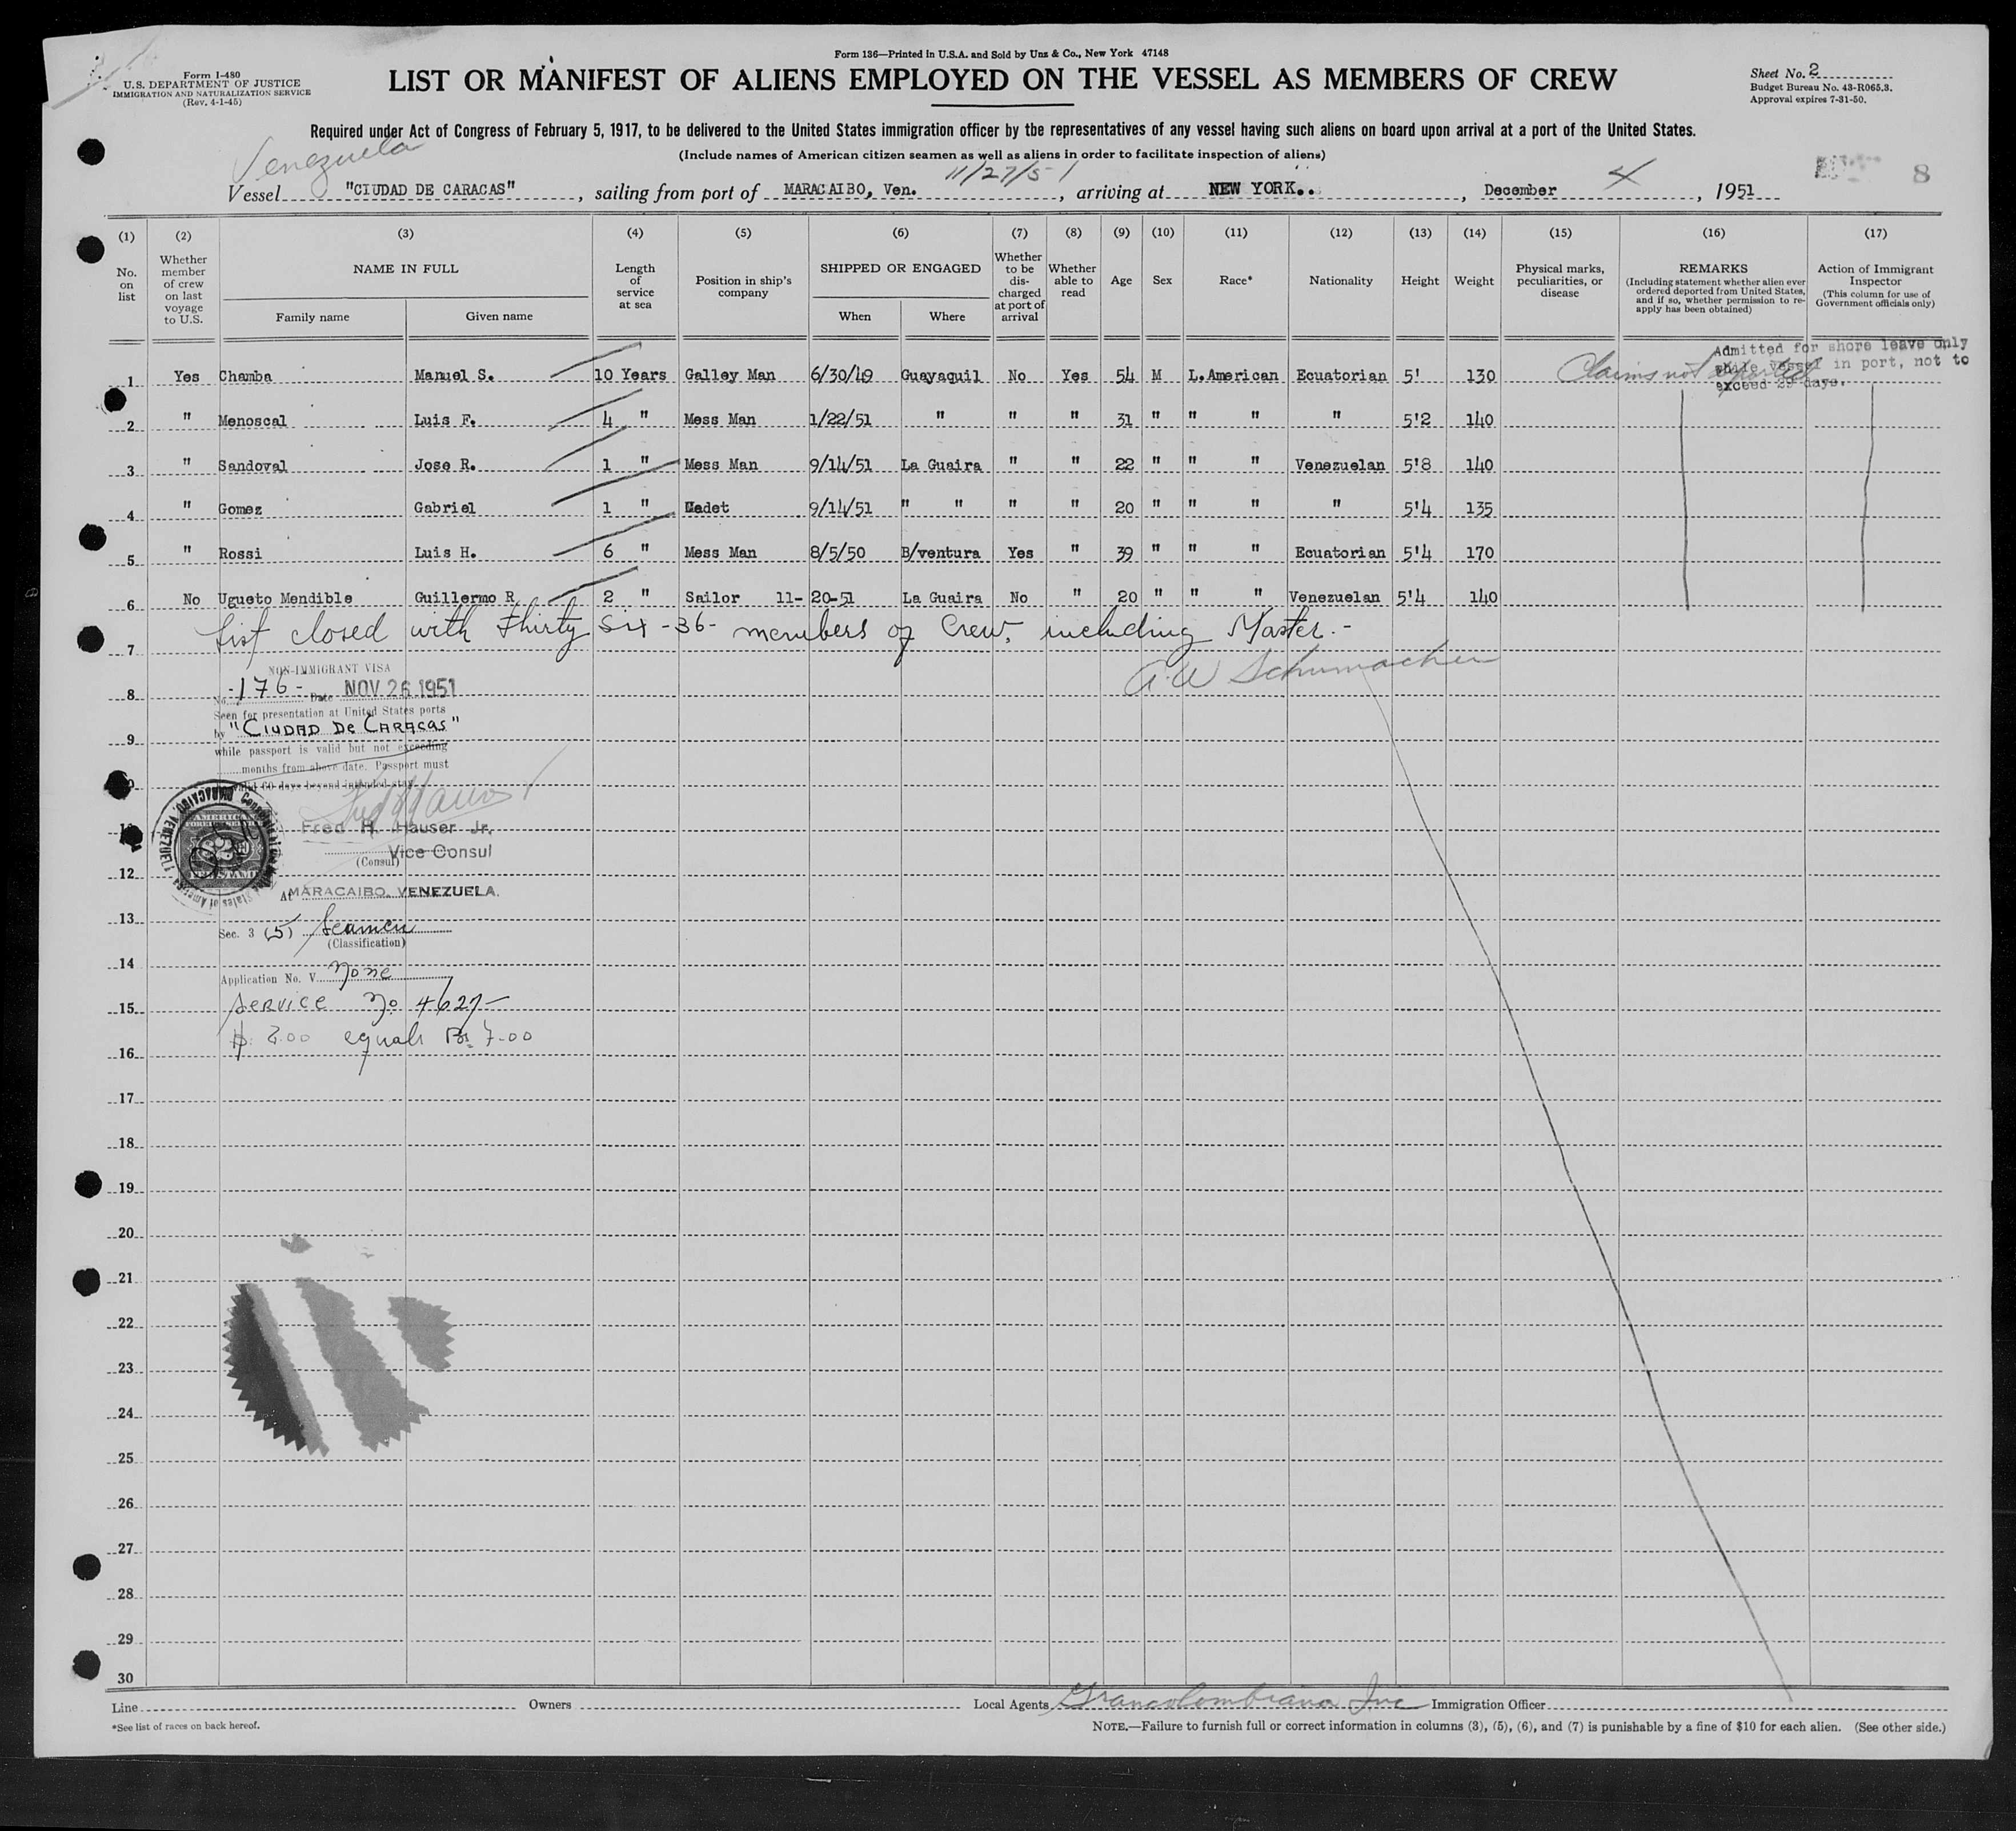 Form 136—Printed in U.S.A. and Sold by Unz & Co., New York 47148
Form I-480
U.S. DEPARTMENT OF JUSTICE
IMMIGRATION AND NATURALIZATION SERVICE
(Rev. 4-1-45)
LIST OR MANIFEST OF ALIENS EMPLOYED ON THE VESSEL AS MEMBERS OF CREW
Sheet No. 2
Budget Bureau No. 43-R065.3.
Approval expires 7-31-50.
Required under Act of Congress of February 5, 1917, to be delivered to the United States immigration officer by the representatives of any vessel having such aliens on board upon arrival at a port of the United States.
(Include names of American citizen seamen as well as aliens in order to facilitate inspection of aliens)
Venezuela
11/27/51
8
Vessel "CIUDAD DE CARACAS", sailing from port of MARACAIBO, Ven., arriving at NEW YORK.., December 4, 1951
(1) (2) (3) (4) (5) (6) (7) (8) (9) (10) (11) (12) (13) (14) (15) (16) (17)
No. on list
Whether member of crew on last voyage to U.S.
NAME IN FULL
Family name
Given name
Length of service at sea
Position in ship's company
SHIPPED OR ENGAGED
When
Where
Whether to be discharged at port of arrival
Whether able to read
Age
Sex
Race*
Nationality
Height
Weight
Physical marks, peculiarities, or disease
REMARKS
(Including statement whether alien ever ordered deported from United States, and if so, whether permission to re-apply has been obtained)
Action of Immigrant Inspector
(This column for use of Government officials only)
Admitted for shore leave only
while vessel in port, not to
exceed 29 days.
1 Yes Chamba Manuel S. 10 Years Galley Man 6/30/49 Guayaquil No Yes 54 M L.American Ecuatorian 5' 130 Claims not deported
2 " Menoscal Luis F. 4 " Mess Man 1/22/51 " " " 31 " " " " 5'2 140
3 " Sandoval Jose R. 1 " Mess Man 9/14/51 La Guaira " " 22 " " " Venezuelan 5'8 140
4 " Gomez Gabriel 1 " Cadet 9/14/51 " " " " 20 " " " " 5'4 135
5 " Rossi Luis H. 6 " Mess Man 8/5/50 B/ventura Yes " 39 " " " Ecuatorian 5'4 170
6 No Ugueto Mendible Guillermo R 2 " Sailor 11-20-51 La Guaira No " 20 " " " Venezuelan 5'4 140
7 List closed with thirty six -36- members of crew, including Master.-
A.W Schumacher
NON-IMMIGRANT VISA
8 No. -176- Date NOV 26 1951
Seen for presentation at United States ports
9 by "CIUDAD De CARACAS"
while passport is valid but not exceeding
months from above date. Passport must
10 valid 60 days beyond intended stay.
11 Fred H. Hauser Jr.
Vice Consul
(Consul)
12
At MARACAIBO, VENEZUELA.
13 Sec. 3 (5) Seamen
(Classification)
14 Application No. V. None
15 Service No 4627-
16 $ 2.00 equals Bs 7.00
17
18
19
20
21
22
23
24
25
26
27
28
29
30
Line Owners Local Agents Grancolombiana Inc Immigration Officer
*See list of races on back hereof.
NOTE.—Failure to furnish full or correct information in columns (3), (5), (6), and (7) is punishable by a fine of $10 for each alien. (See other side.)